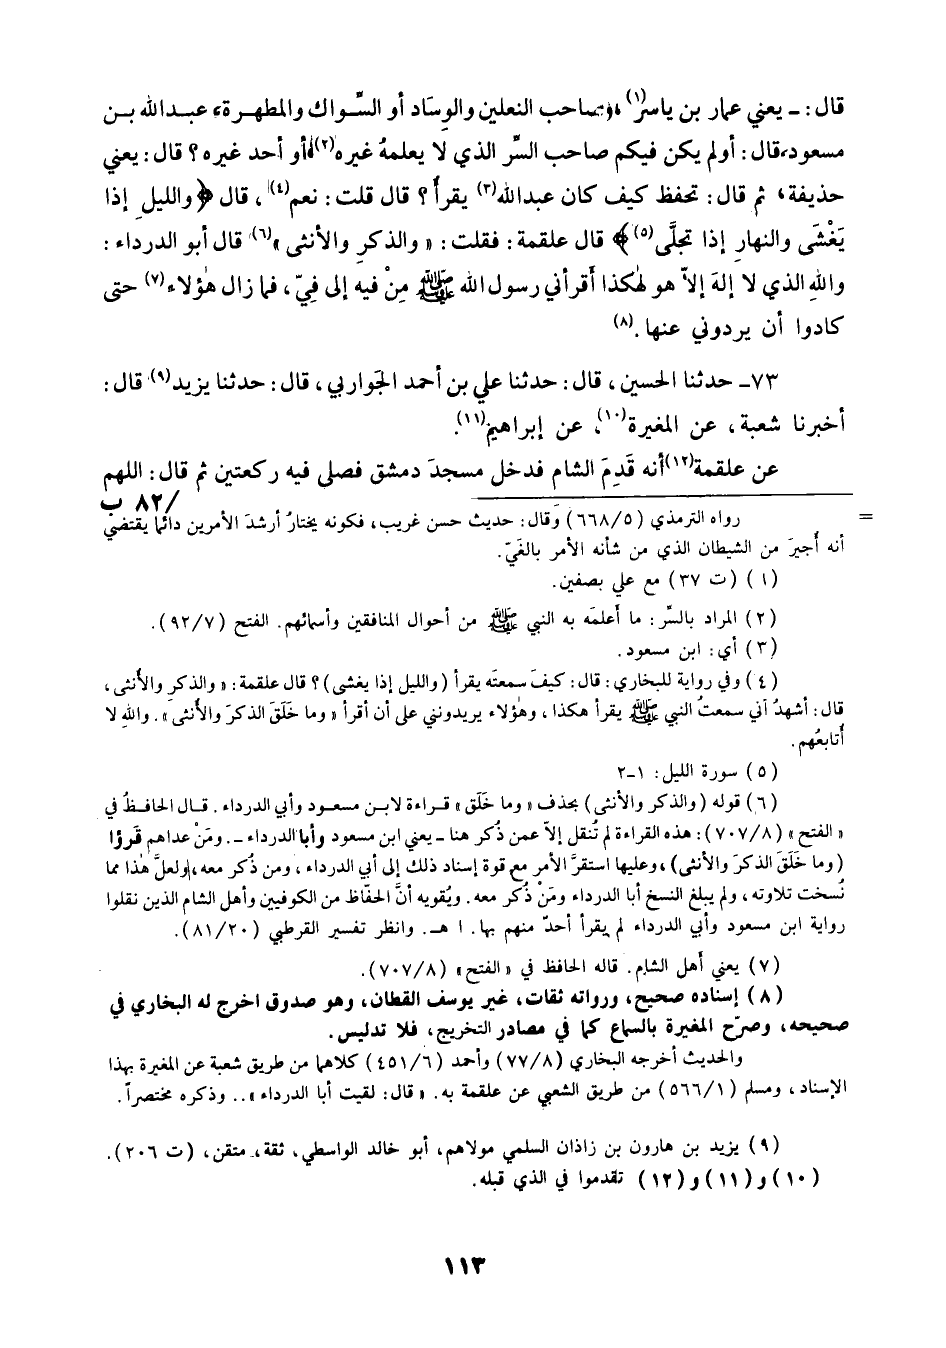 قال: ـ يعني عمار بن ياسر(١)، وصاحب النعلين والوِسَاد أو السِّواك والمطهرة، عبدالله بن
مسعود، قال: أولم يكن فيكم صاحب السِّر الذي لا يعلمهُ غيره(٢)، أو أحد غيره؟ قال: يعني
حذيفة، ثم قال: تحفظ كيف كان عبدالله(٣) يقرأ؟ قال قلت: نعم(٤)، قال ﴿والليلِ إذا
يَغْشَى والنهارِ إذا تجلَّى(٥)﴾ قال علقمة: فقلت: «والذكرِ والأنثى»(٦) قال أبو الدرداء:
واللهِ الذي لا إلهَ إلاّ هو لهٰكذا أقرأني رسول الله ﷺ مِنْ فيه إلى فِيّ، فما زال هٰؤلاء(٧) حتى
كادوا أن يردوني عنها.(٨)
٧٣ـ حدثنا الحسين، قال: حدثنا علي بن أحمد الجواربي، قال: حدثنا يزيد(٩) قال:
أخبرنا شعبة، عن المغيرة(١٠)، عن إبراهيم(١١).
عن علقمة(١٢) أنه قَدِمَ الشام فدخل مسجدَ دمشق فصلى فيه ركعتين ثم قال: اللهم
/٨٢ ب
= رواه الترمذي (٦٦٨/٥) وقال: حديث حسن غريب، فكونه يختارُ أرشدَ الأمرين دائما يقتضي
أنه أُجيرَ من الشيطان الذي من شأنه الأمر بالغَيّ.
(١) (ت ٣٧) مع علي بصفين.
(٢) المراد بالسِّر: ما أَعلمَه به النبي ﷺ من أحوال المنافقين وأسمائهم. الفتح (٩٢/٧).
(٣) أي: ابن مسعود.
(٤) وفي رواية للبخاري: قال: كيفَ سمعتَه يقرأ (والليل إذا يغشى)؟ قال علقمة: «والذكرِ والأُنثى،
قال: أشهدُ أني سمعتُ النبي ﷺ يقرأ هكذا، وهٰؤلاء يريدونني على أن أقرأ «وما خَلَقَ الذكرَ والأُنثى». واللهِ لا
أتابعُهم.
(٥) سورة الليل: ١-٢
(٦) قوله (والذكر والأنثى) بحذف «وما خَلَق» قراءة لابن مسعود وأبي الدرداء. قال الحافظُ في
«الفتح» (٧٠٧/٨): هذه القراءة لم تُنقل إلاّ عمن ذُكر هنا ـ يعني ابن مسعود وأبا الدرداء ـ. ومَنْ عداهم قرؤا
(وما خَلَقَ الذكرَ والأنثى)، وعليها استقرَّ الأمر مع قوة إسناد ذلك إلى أبي الدرداء، ومن ذُكر معه، ولعلَّ هٰذا مما
نُسخت تلاوته، ولم يبلغ النسخ أبا الدرداء ومَنْ ذُكر معه. ويُقويه أنَّ الحفّاظ من الكوفيين وأهل الشام الذين نقلوا
رواية ابن مسعود وأبي الدرداء لم يقرأ أحدٌ منهم بها. ا هـ. وانظر تفسير القرطبي (٨١/٢٠).
(٧) يعني أهل الشام. قاله الحافظ في «الفتح» (٧٠٧/٨).
(٨) إسناده صحيح، ورواته ثقات، غير يوسف القطان، وهو صدوق اخرج له البخاري في
صحيحه، وصرّح المغيرة بالسماع كما في مصادر التخريج، فلا تدليس.
والحديث أخرجه البخاري (٧٧/٨) وأحمد (٤٥١/٦) كلاهما من طريق شعبة عن المغيرة بهذا
الإسناد، ومسلم (٥٦٦/١) من طريق الشعبي عن علقمة به. «قال: لقيت أبا الدرداء».. وذكره مختصراً.
(٩) يزيد بن هارون بن زاذان السلمي مولاهم، أبو خالد الواسطي، ثقة، متقن، (ت ٢٠٦).
(١٠) و(١١) و(١٢) تقدموا في الذي قبله.
١١٣